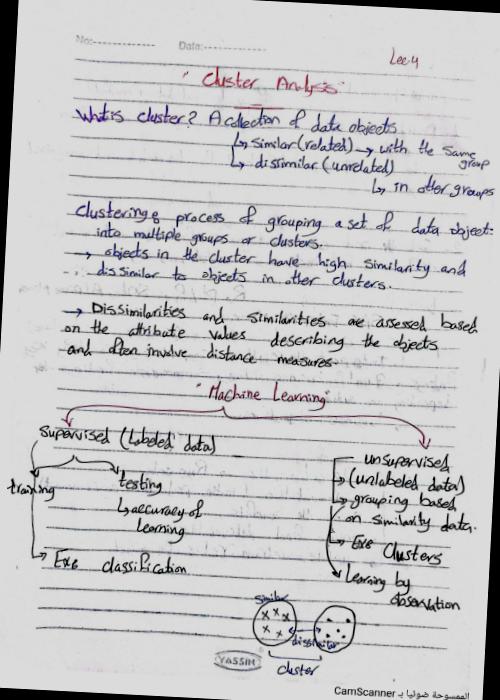 No:-------------- Date:--------------
Lec 4
"Cluster Analysis"
What is cluster? A collection of data objects
↳ similar (related) → with the same group
↳ dissimilar (unrelated)
↳ in other groups
Clustering: process of grouping a set of data object:
into multiple groups or clusters.
→ objects in the cluster have high similarity and
dissimilar to objects in other clusters.
→ Dissimilarities and similarities are assessed based
on the attribute values describing the objects
and often involve distance measures.
"Machine Learning"
Supervised (Labeled data)
training
testing
↳ accuracy of
learning
↳ Ex: classification
unsupervised
↳ (unlabeled data)
↳ grouping based
on similarity data.
→ Ex: Clusters
Learning by
observation
similar
x x x
x x
dissimilar
cluster
YASSIN
الممسوحة ضوئيا بـ CamScanner